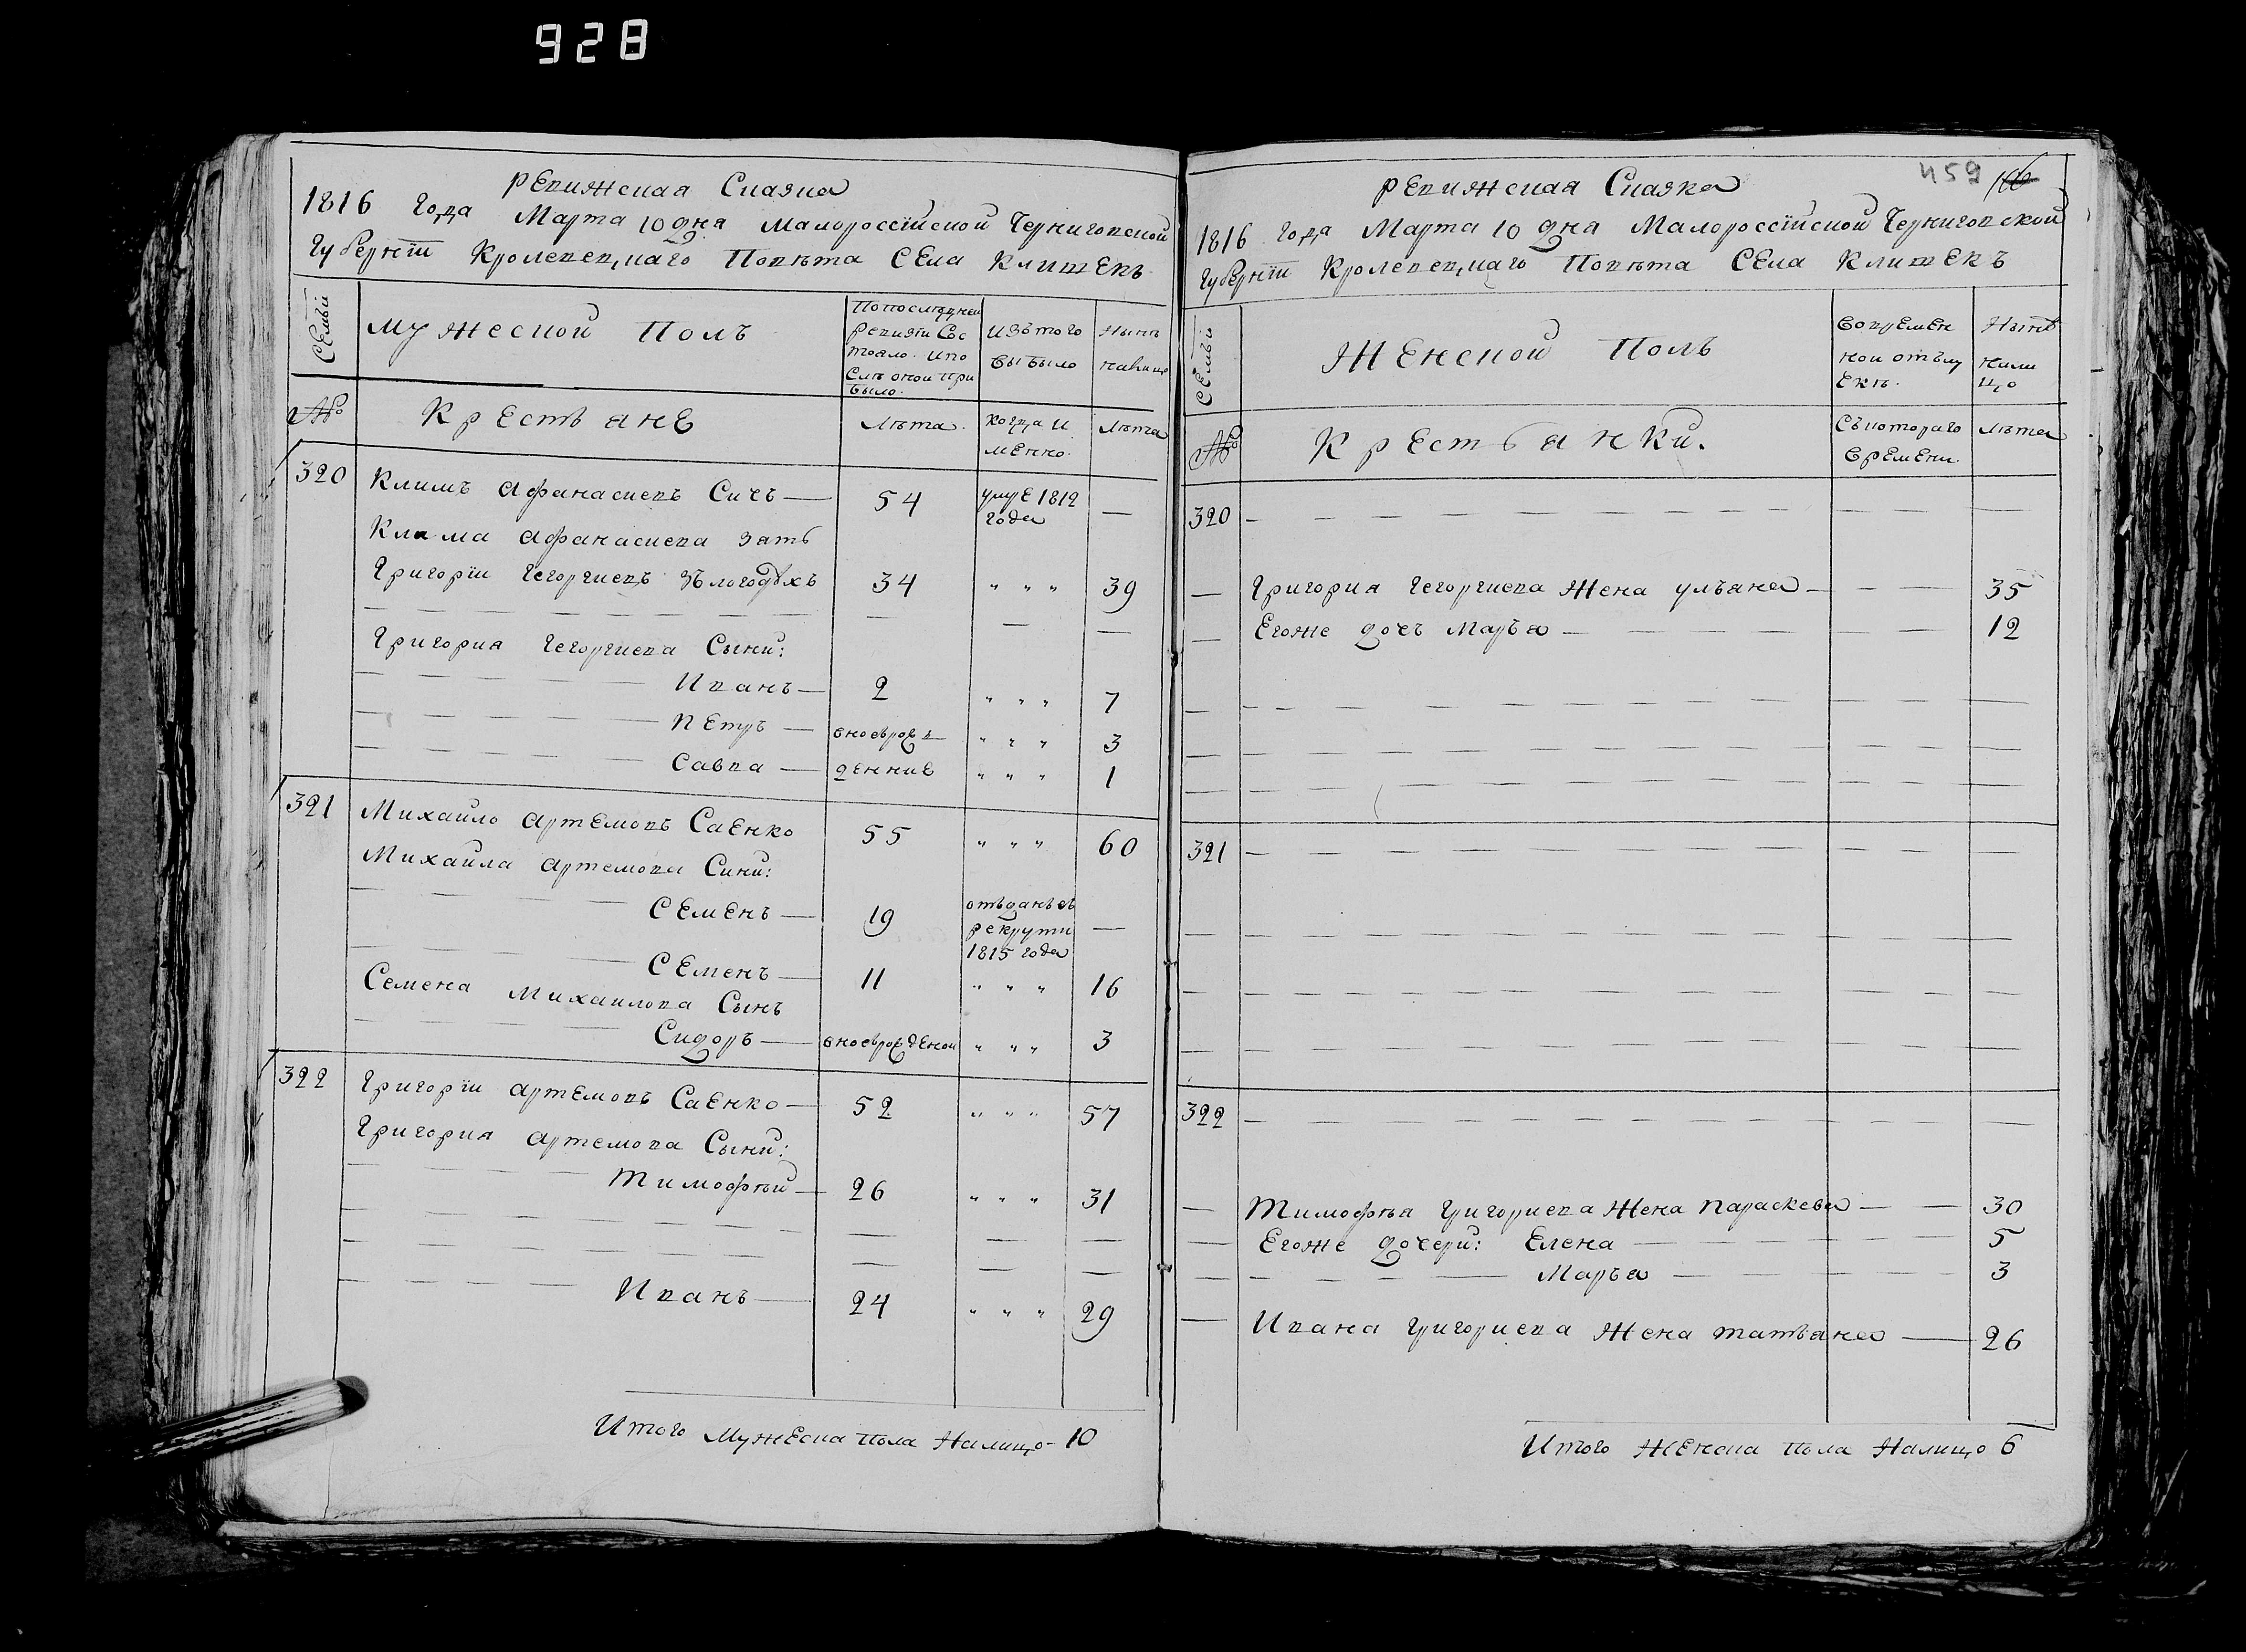 928
Ревижская Сказка
1816 года Марта 10 дня Малороссїйской Черниговской
Губернїи Кролевецкаго Повѣта Села Клишекъ
Семьи
Мужеской Полъ
По последней
ревизїи Сос
тояло. и по
слѣ оной при
было.
Изъ того
выбыло
Нынѣ
налицо
№
Крестьяне
Лѣта.
когда и
менно.
Лѣта
320
Климъ Афанасиевъ Сичъ — 54 умре 1812
года —
Клима Афанасиева зать
Григорїи Гегоргиевъ 34 " " " 39
Григория Гегоргиева Сыни:
Иванъ — 2 " " " 7
Петръ — вновьрож " " " 3
Савва — денние " " " 1
321
Михайло Артемовъ Саенко 55 " " " 60
Михайла Артемова Сини:
Семенъ — 19 отъданъ въ
рекрути —
1815 года
Семенъ — 11 " " " 16
Семена Михайлова Сынъ
Сидоръ — вноврожденой " " " 3
322
Григорїи Артемовъ Саенко — 52 " " " 57
Григория Артемова Сыни:
Тимофѣй — 26 " " " 31
Иванъ — 24 " " " 29
Итого мужеска пола Налицо - 10
459
Ревижская Сказка
1816 года Марта 10 дня Малороссїйской Черниговской
Губернїи Кролевецкаго Повѣта Села Клишекъ
Семьи
Женской Полъ
Во времен
ной отълу
екъ.
Нынѣ
Нали
цо
№
Крестьанки.
Съ котораго
времени.
Лѣта
320
Григория Гегоргиева Жена улъана — 35
Егоже дочъ Маръа — 12
321
322
Тимофѣя Григориева Жена Параскева — 30
Егоже дочери: Елена — 5
Маръа — 3
Ивана Григориева Жена татъана — 26
Итого Женска пола Налицо 6